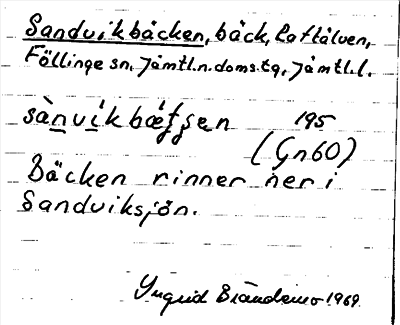 Sandvikbäcken, bäck, Loftälven,
Föllinge sn, Jämtl.n.doms.tg, Jämtl.l.
195
(Gn60)
Bäcken rinner ner i
Sandviksjön.
Yngrid 1969